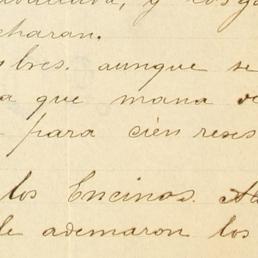 y los
charan.
bres. aunque se
a que mana de
para cien reses
los Encinos.
le ademaron los